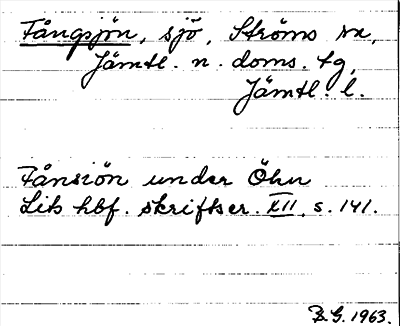 Fångsjön, sjö, Ströms sn,
Jämtl. n. doms. tg,
Jämtl. l.
Fånsiön under Öhn
Lits hbf. skriftser. XII, s. 141.
B.G. 1963.